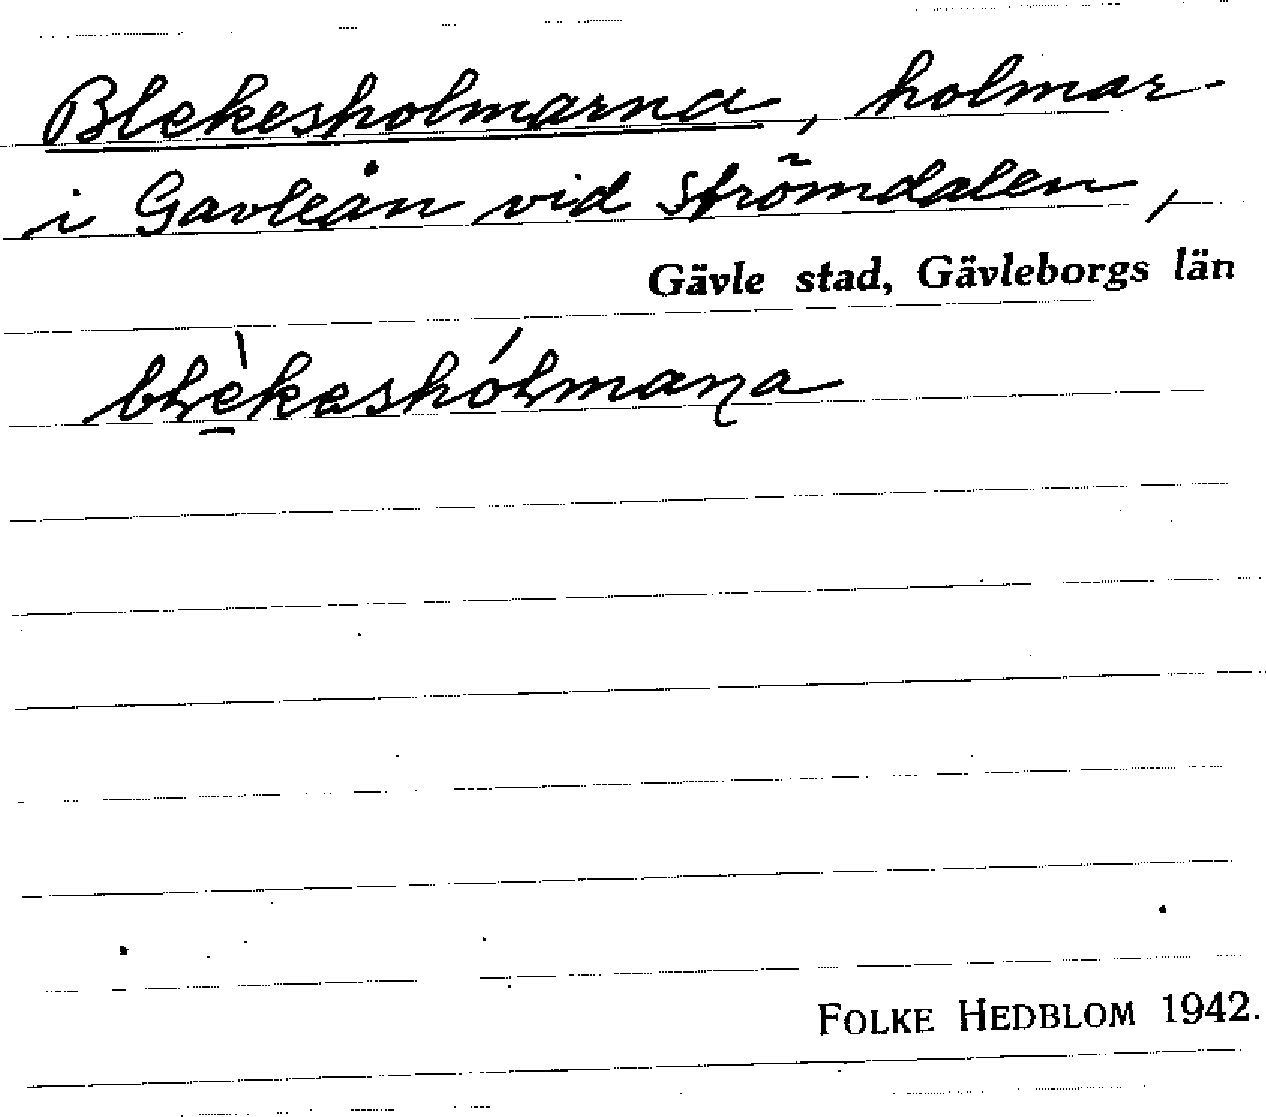 Blekesholmarna, holmar
i Gavleån vid Strömdalen,
Gävle stad, Gävleborgs län
blèkeshólmaṇa
FOLKE HEDBLOM 1942.